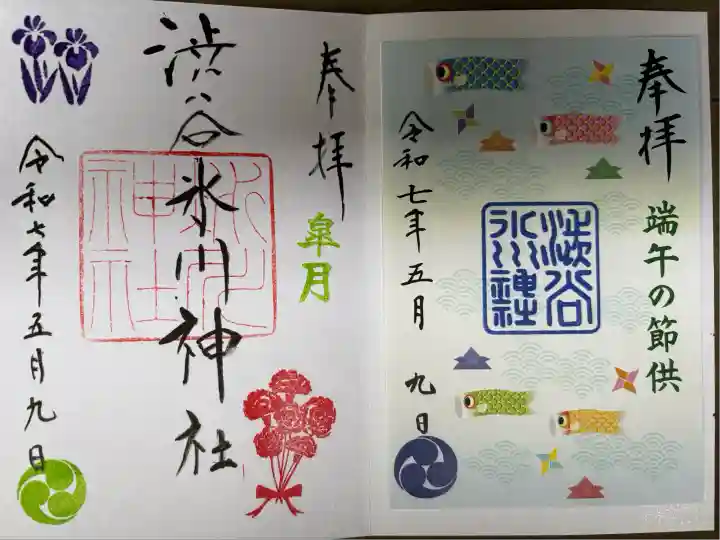 奉拝
端午の節供
澁谷
氷川神社
令和七年五月九日
奉拝
皐月
渋谷氷川神社
氷川
神社
令和七年五月九日